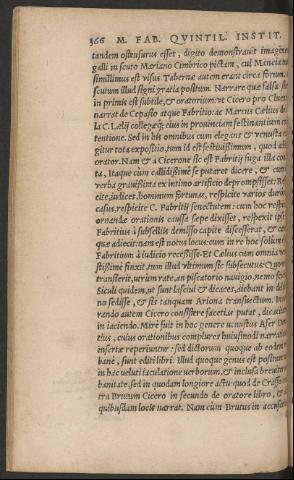 366 M. FAB. QVINTIL. INSTIT.
tandem ostensurus esset, digito demonstrauit imaginem
galli in scuto Mariano Cimbrico pictam, cui Mancia tum
simillimus est uisus. Tabernæ autem erant circa forum,
scutum illud signi gratia positum. Narrare quæ salsa sint
in primis est subtile, & oratorium: ut Cicero pro Cluen
narrat de Cepasio atque Fabritio: ac Marcus Cælius de
la C. Lælij collegæq; eius in prouinciam festinantium con
tentione. Sed in his omnibus cum elegans & uenusta
gitur tota expositio, tum id est festiuissimum, quod adi
orator. Nam & à Cicerone sic est Fabritij fuga illa con
ta, Itaque cum callidissimè se putaret dicere, & cum
uerba grauissima ex intimo artificio deprompsisset: Re
cite, iudices, hominum fortunas, respicite varios duri
casus, respicite C. Fabritij senectutem: cum hoc respi
ornandæ orationis caussa sæpe dixisset, respexit ipse
Fabritius à subselliis demisso capite discesserat, & cæ
quæ adiecit: nam est notus locus: cum in re hoc solùm
Fabritium à iudicio recessisse. Et Cælius cum omnia ve
stissimè finxit, tum illud vltimum: sic subsecutus Quom
transierit, utrùm rate, an piscatorio nauigio, nemo
Siculi quidem, ut sunt lasciui & dicaces, aiebant in del
no sedisse, & sic tanquam Ariona transuectum. In
rando autem Cicero consistere facetias putat, dicacita
in iaciendo. Mirè fuit in hoc genere uenustus Afer Do
tius, cuius orationibus complures huiusmodi narrationes
insertæ reperiuntur: sed dictorum quoque ab eodem
banè, sunt editi libri. Illud quoque genus est positum
in hac ueluti iaculatione uerborum, & inclusa breuiter
banitate: sed in quodam longiore actu: quod de Crasso
tra Brutum Cicero in secundo de oratore libro, & a
quibusdam locis narrat. Nam cùm Brutus in accusatio